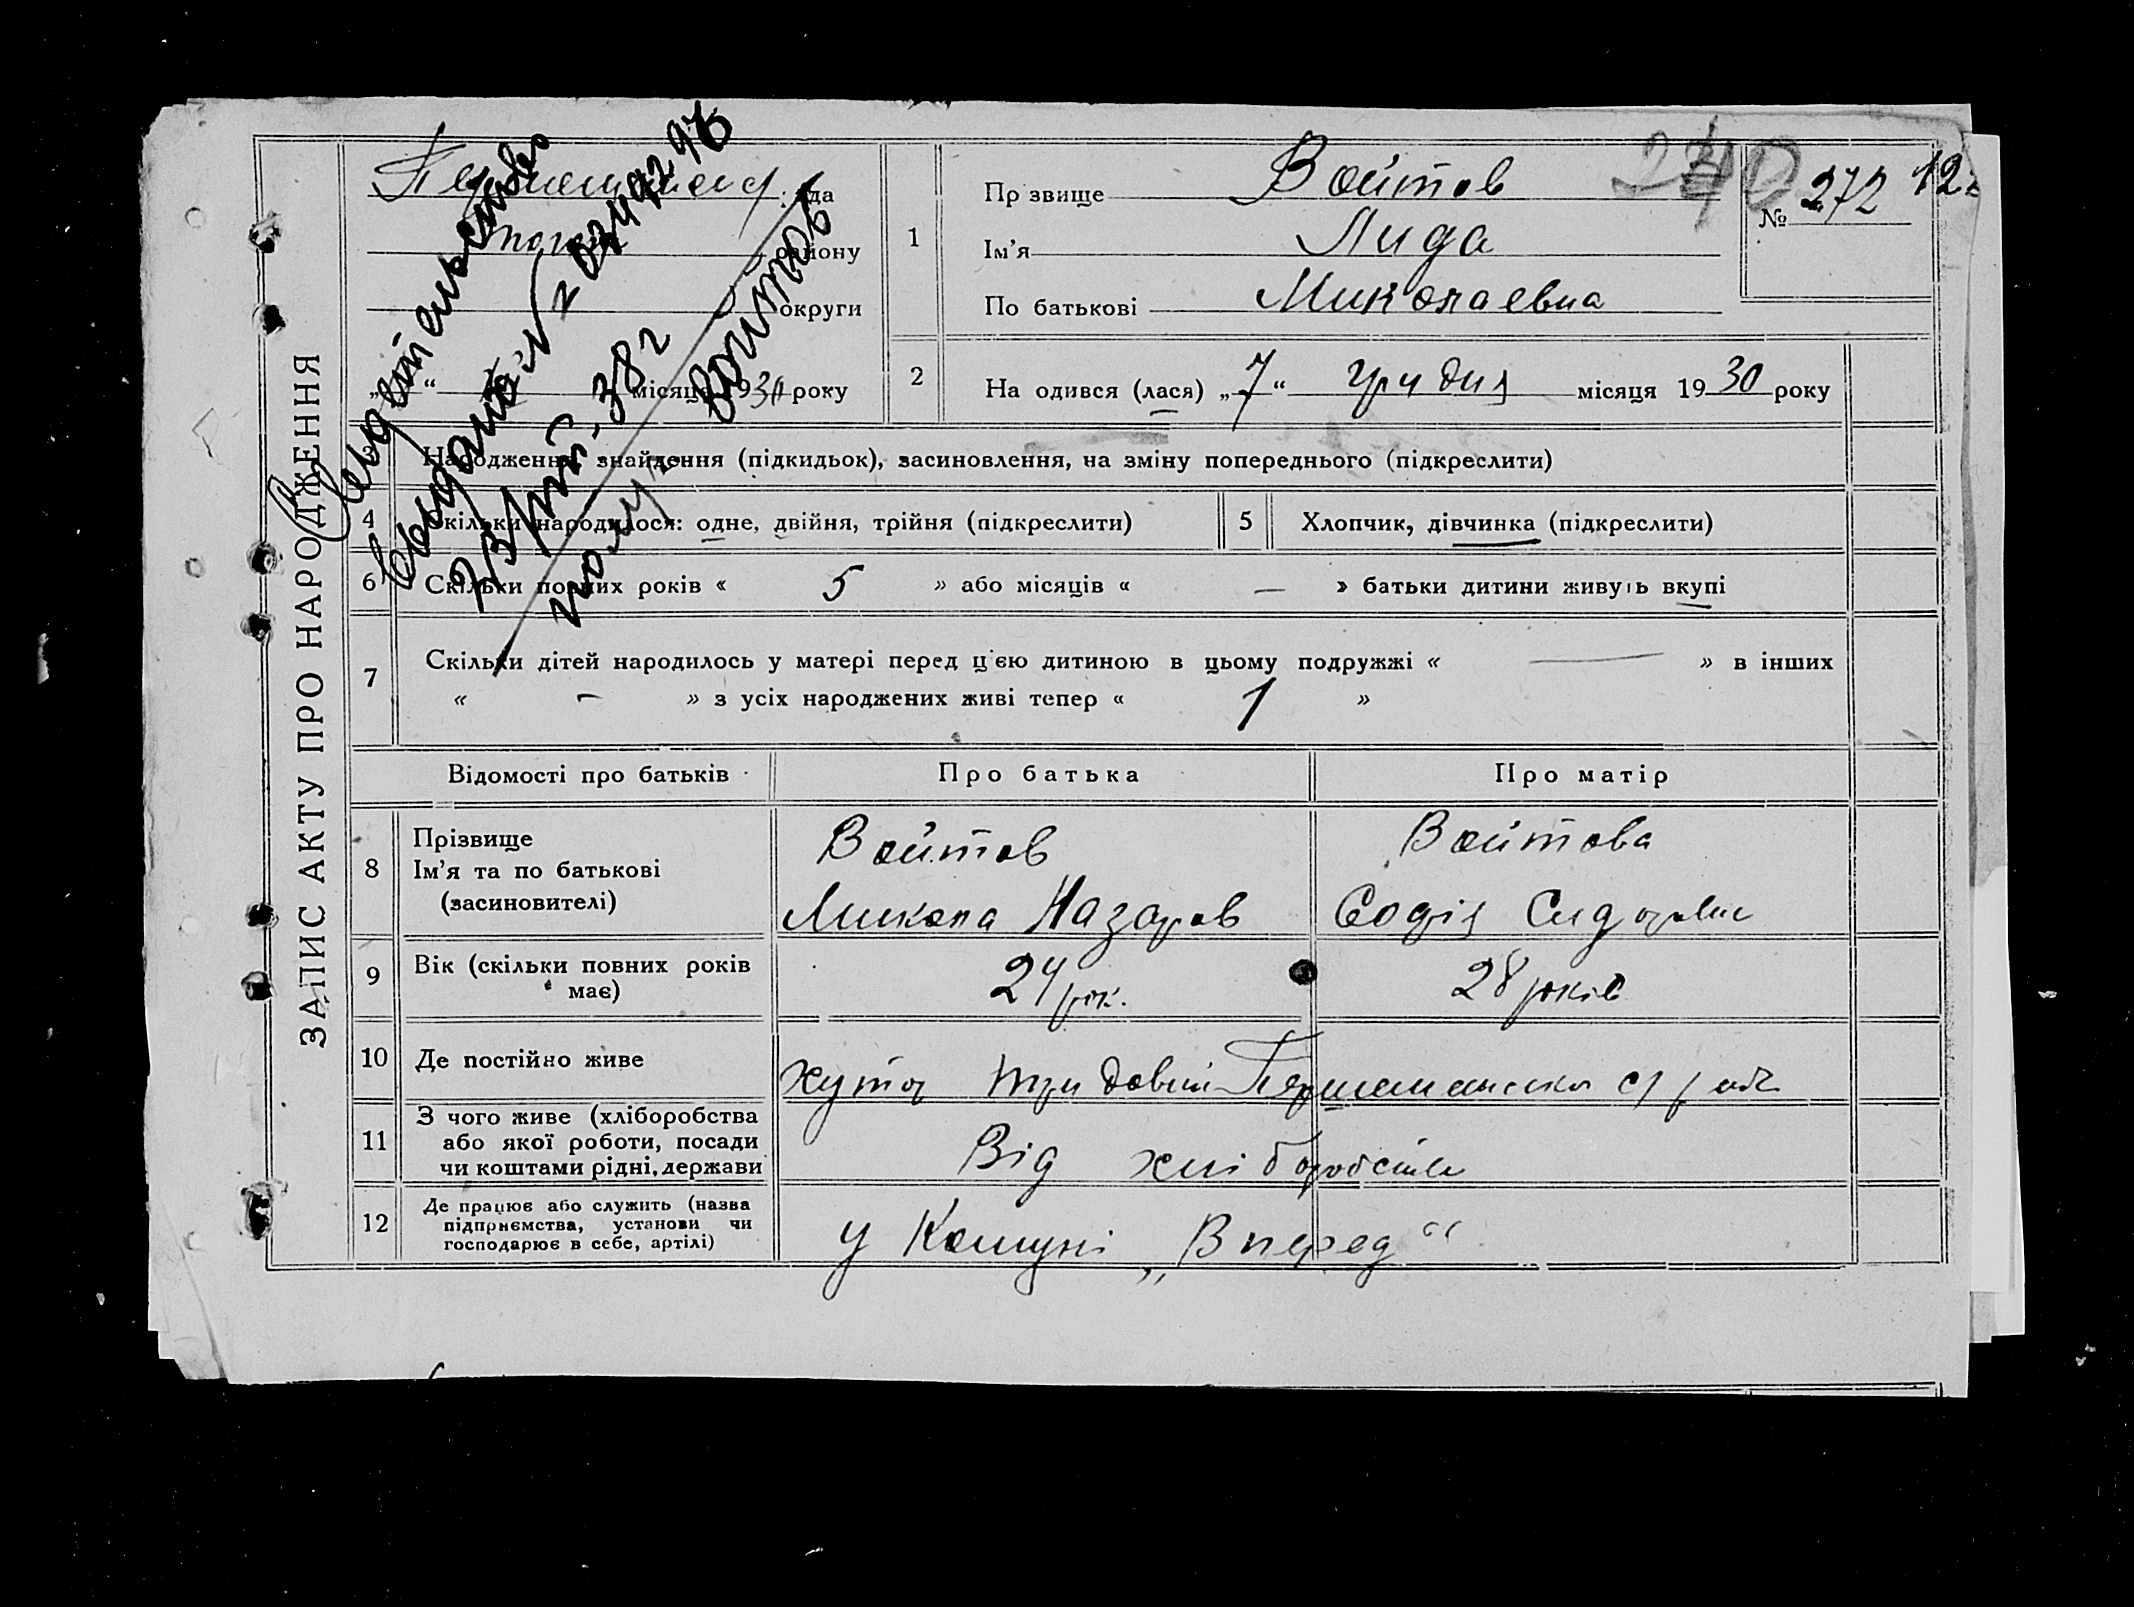 ЗАПИС АКТУ ПРО НАРОДЖЕННЯ
района
округи
місяця 1930 року
Свидетельство
выдано
№ 0349297
23/VIII-38 г
Войтов
240
№ 272
12
1
Прзвище Войтов
Ім'я Лида
По батькові Миколаевна
2
На одився (лася) „7“ грудня місяця 1930 року
3
Народження, знайдення (підкидьок), засиновлення, на зміну попереднього (підкреслити)
4
Скільки народилося: одне, двійня, трійня (підкреслити)
5
Хлопчик, дівчинка (підкреслити)
6
Скільки повних років « 5 » або місяців « — » батьки дитини живуть вкупі
7
Скільки дітей народилось у матері перед цією дитиною в цьому подружжі « — » в інших
« – » з усіх народжених живі тепер « 1 »
Відомості про батьків
Про батька
Про матір
8
Прізвище
Ім'я та по батькові
(засиновителі)
Войтов
Микола Назаров
Войтова
Софія Сидоровна
9
Вік (скільки повних років
має)
24 рок.
28 років
10
Де постійно живе
хутор Трудовий
11
З чого живе (хліборобства
або якої роботи, посади
чи коштами рідні, держави
Від хліборобства
12
Де працює або служить (назва
підприємства, установи чи
господарює в себе, артілі)
у Комуні „Вперед“